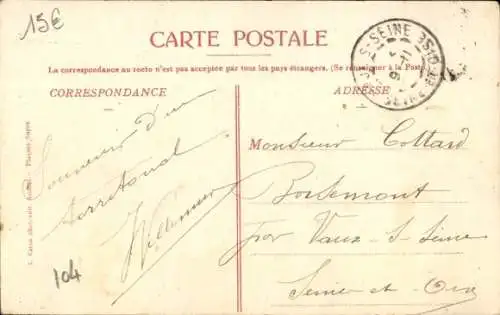 15€
CARTE POSTALE
La correspondance au recto n'est pas acceptée par tous les pays étrangers. (Se renseigner à la Poste)
CORRESPONDANCE
ADRESSE
Souvenir d'un
territorial
104
Monsieur Cottard
Boisemont
par Vaux-S-Seine
Seine et Oise